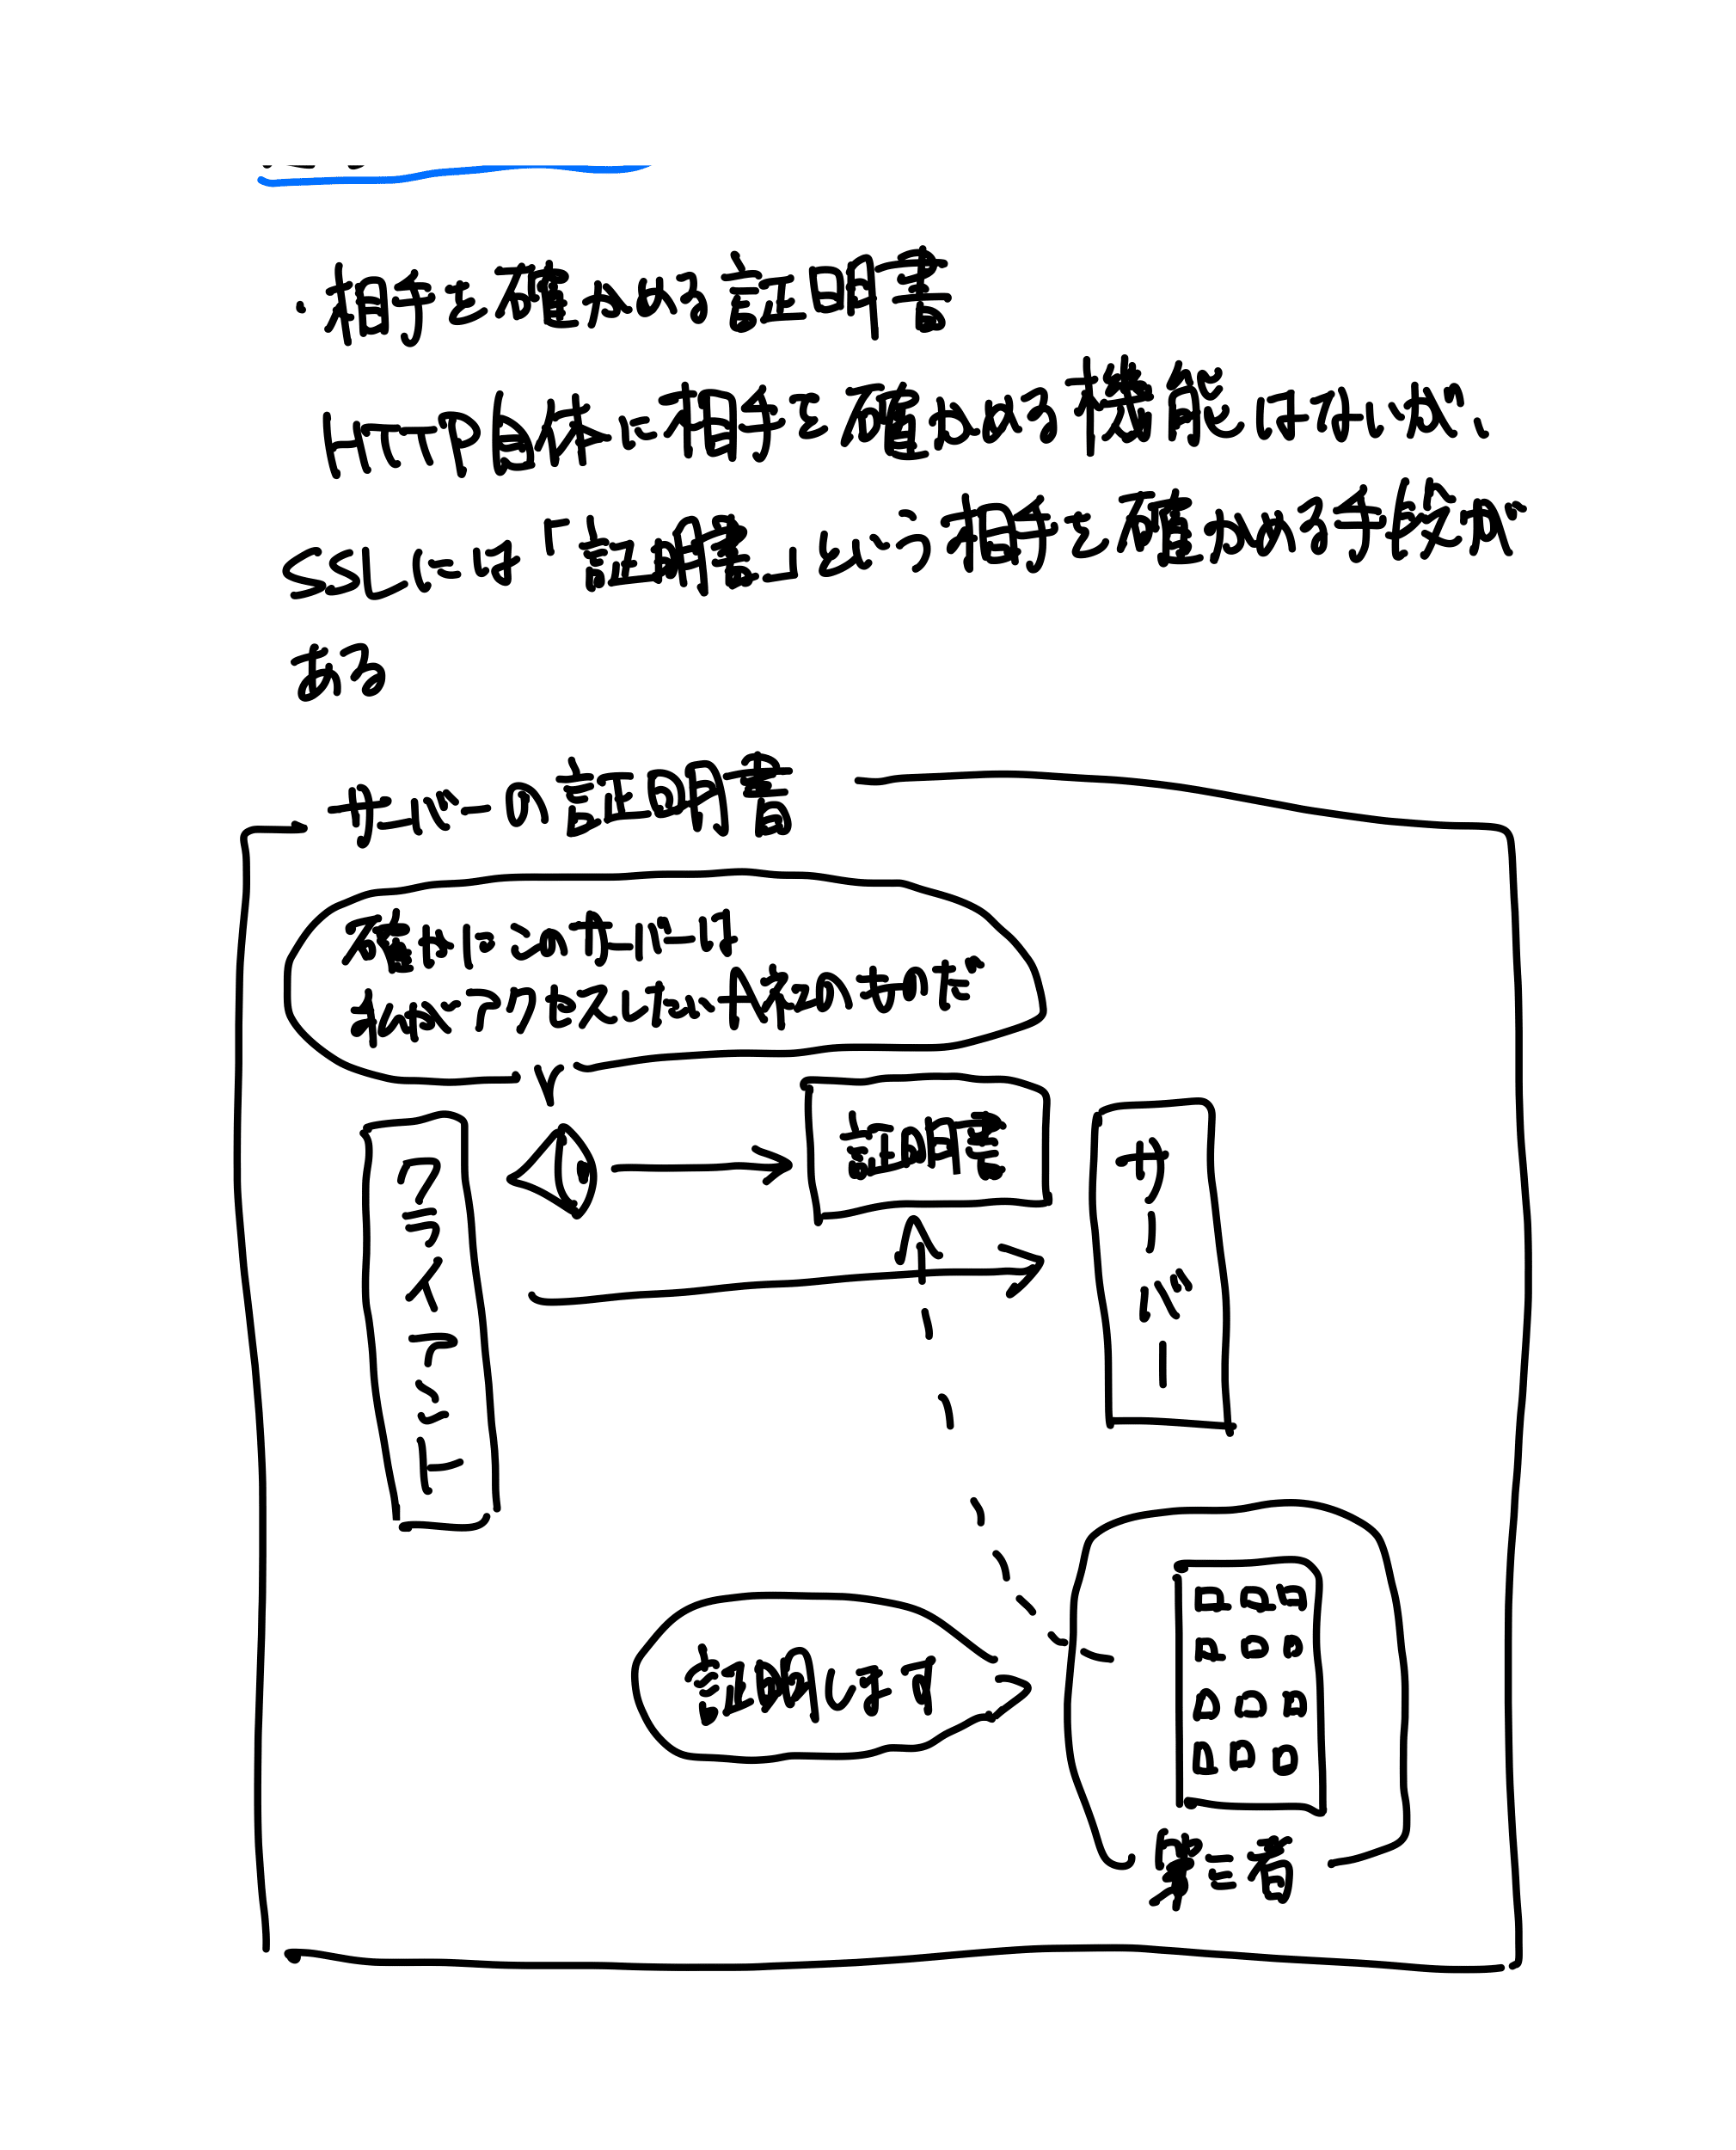 ・相手を確かめる証明書
HTTP自体に相手を確かめる機能はないが、
SSLには「証明書」という相手を確かめる手段が
ある
サーバーの証明書
確かにこのサーバーは
私がアクセスしたいA社のものだ
証明書
クライアント
サーバー
証明します
第三者